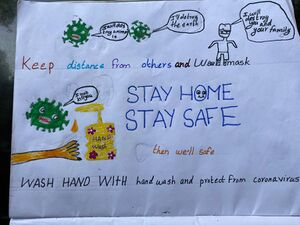 I'll destroy the earth
I will
destroy you
and
your family
Keep distance from others and Wear mask
STAY HOME
STAY SAFE
HAND
WASH
then we'll safe
WASH HAND WITH hand wash and protect from coronavirus